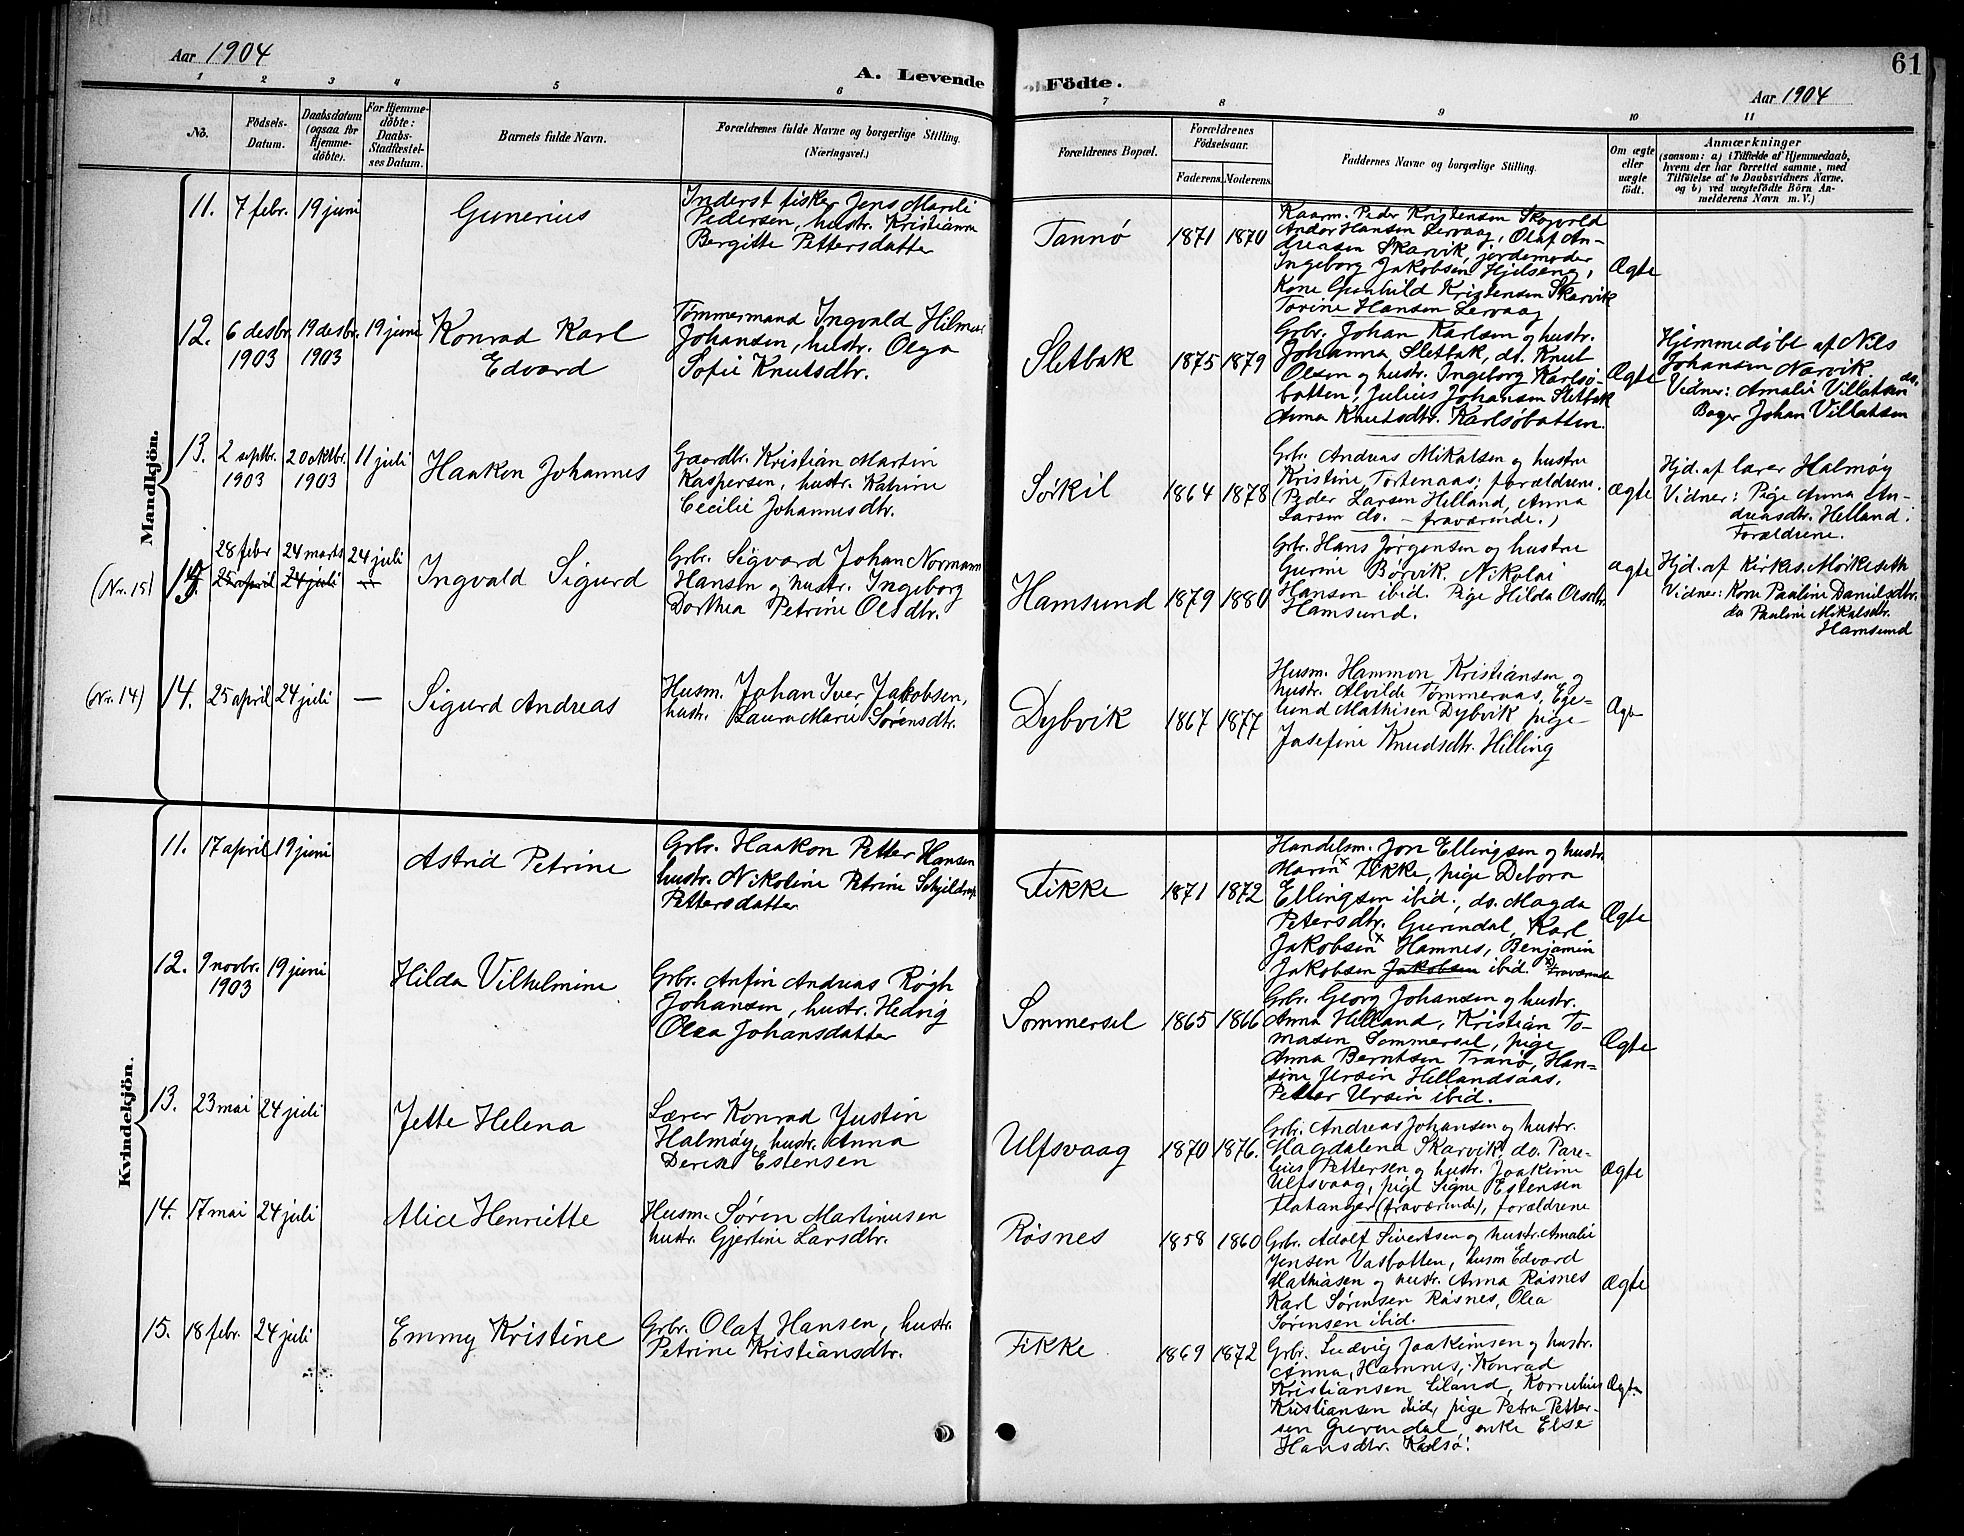 Aar 1904
A. Levende Födte.
Aar 1904
61
1 2 3 4 5 6 7 8 9 10 11
No.
Födsels-
Datum.
Daabsdatum
(ogsaa for
Hjemme-
döbte).
For Hjemme-
döbte:
Daabs-
Stadfæstel-
ses Datum.
Barnets fulde Navn.
Forældrenes fulde Navne og borgerlige Stilling.
(Næringsvei.)
Forældrenes Bopæl.
Forældrenes
Födselsaar.
Faderens. Moderens.
Faddernes Navne og borgerlige Stilling.
Om ægte
eller
uægte
født.
Anmærkninger
(saasom: a) i Tilfælde af Hjemmedaab,
hvem der har forrettet samme, med
Tilføielse af to Daabsvidners Navne.
og b) ved uægtefødte Börn An-
melderens Navn m. V.)
Mandkjön.
11. 7 febr. 19 juni
Gunerius
Inderst fisker Jens Mareli
Pedersen, hustr. Kristianna
Bergitte Pettersdatter
Tannø
1871 1870
Kaarm. Peder Kristensen Skogvold
Andor Hansen Lervaag, Olaf An-
dreasen Skarvik, jordemoder
Ingeborg Jakobsen Hjelseng,
Kone Gunhild Kristensen Skarvik
Torine Hansen Lervaag
Ægte
12. 6 desbr. 19 desbr. 19 juni
1903 1903
Konrad Karl
Edvard
Tømmermand Ingvald Hilmar
Johansen, hustr. Olga
Sofie Knutsdtr.
Sletbak
1875 1879
Grbr. Johan Karlsen og hustr.
Johanna Sletbak, do. Knut
Olsen og hustr. Ingeborg Karlsø-
botten, Julius Johansen Sletbak
Anna Knutsdtr. Karlsøbotten.
Ægte
Hjemmedøbt af Nils
Johansen Narvik.
Vidner: Amalie Villatsen
do.
Bager Johan Villatsen
13. 2 septbr. 20 oktbr. 11 juli
1903 1903
Haakon Johannes
Gaardbr. Kristian Martin
Kaspersen, hustr. Katrine
Cecilie Johannesdtr.
Sørkil
1864 1878
Grbr. Andreas Mikalsen og hustru
Kristine Tortenaas; forældrene.
(Peder Larsen Helland, Anna
Larsen do. – fraværende.)
Ægte
Hjd. af lærer Halmøy
Vidner: Pige Anna An-
dreasdtr. Helland.
Forældrene.
(Nr. 15) 15.
28 febr 24 marts 24 juli
25 april 24 juli
Ingvald Sigurd
Grbr. Sigvard Johan Normann
Hansen og hustr. Ingeborg
Dorthea Petrine Olsdtr.
Hamsund
1879 1880
Grbr. Hans Jørgensen og hustru
Gurine Børvik. Nikolai
Hansen ibid. Pige Hilda Olsdtr.
Hamsund.
Ægte
Hjd. af Kirkes. Mørkeseth
Vidner: Kone Pauline Danielsdtr.
do Pauline Mikalsdtr.
Hamsund
(Nr. 14) 14. 25 april 24 juli —
Sigurd Andreas
Husm. Johan Iver Jakobsen,
hustr. Laura Marie Sørensdtr.
Dybvik
1867 1877
Husm. Hammon Kristiansen og
hustr. Alvilde Tømmeraas, Ege-
lund Mathisen Dybvik pige
Josefine Knudsdtr. Hilling
Ægte
Kvindekjön.
11. 17 april 19 juni
Astrid Petrine
Grbr. Haakon Petter Hansen
hustr. Nikoline Petrine Schjeldrup
Pettersdatter
Fikke
1871 1872
Handelsm. Jon Ellingsen og hustr.
Marin x Fikke, pige Debora
Ellingsen ibid., do. Magda
Petersdtr. Gurendal, Karl
Jakobsen x Hamnes, Benjamin
Jakobsen Jakobsen ibid. x) fraværende
Ægte
12. 9 novbr. 19 juni
1903
Hilda Vilhelmine
Grbr. Anfin Andreas Røgh
Johansen, hustr. Hedvig
Olea Johansdatter
Sommersel
1865 1866
Grbr. Georg Johansen og hustr.
Anna Helland, Kristian To-
masen Sommersel, pige
Anna Berntsen Tranø, Han-
sine Ursin Hellandsaas,
Petter Ursin ibid.
Ægte
13. 23 mai 24 juli
Jette Helena
Lærer Konrad Justin
Halmøy, hustr. Anna
Estensen
Ulfsvaag
1870 1876.
Grbr. Andreas Johansen og hustr.
Magdalena Skarvik, do. Pare-
lius Pettersen og hustr. Joakime
Ulfsvaag, pige Signe Estensen
Flatanger (fraværende), forældrene
Ægte
14. 17 mai 24 juli
Alice Henriette
Husm. Søren Martinusen
hustr. Gjertine Larsdtr.
Røsnes
1858 1860
Grbr. Adolf Sivertsen og hustr. Amalie
Jensen Vasbotten, husm Edvard
Mathiasen og hustr. Anna Røsnes
Karl Sørensen Røsnes, Olea
Sørensen ibid.
Ægte
15. 18 febr. 24 juli
Emmy Kristine
Grbr. Olaf Hansen, hustr.
Petrine Kristiansdtr.
Fikke
1869 1872
Grbr. Ludvig Joakimsen og hustr.
Anna, Hamnes, Konrad
Kristiansen Liland, Kornelius
Kristiansen ibid, pige Petra Petter-
sen Gurendal, enke Else
Hansdtr. Karlsø.
Ægte